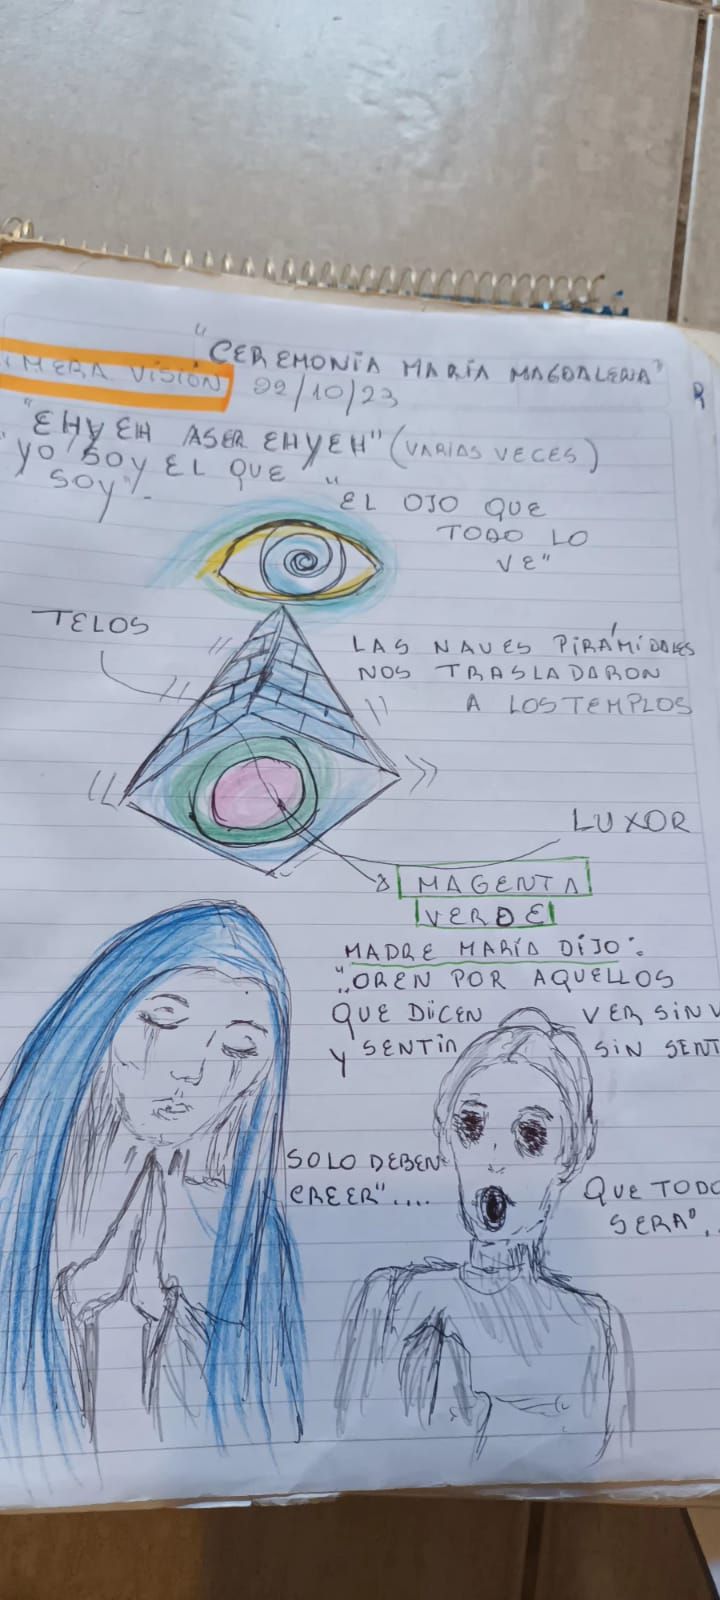 "CEREMONIA MARÍA MAGDALENA"
IMERA VISIÓN 22/10/23
"EHYEH ASER EHYEH" (VARIAS VECES)
"YO SOY EL QUE
SOY".
"EL OJO QUE
TODO LO
VE"
TELOS
LAS NAVES PIRÁMIDALES
NOS TRASLADARON
A LOS TEMPLOS
LUXOR
MAGENTA
VERDE
MADRE MARÍA DIJO:
"OREN POR AQUELLOS
QUE DIICEN VER SIN V
Y SENTIR SIN SENT
SOLO DEBEN
CREER"....
QUE TODO
SERA"..